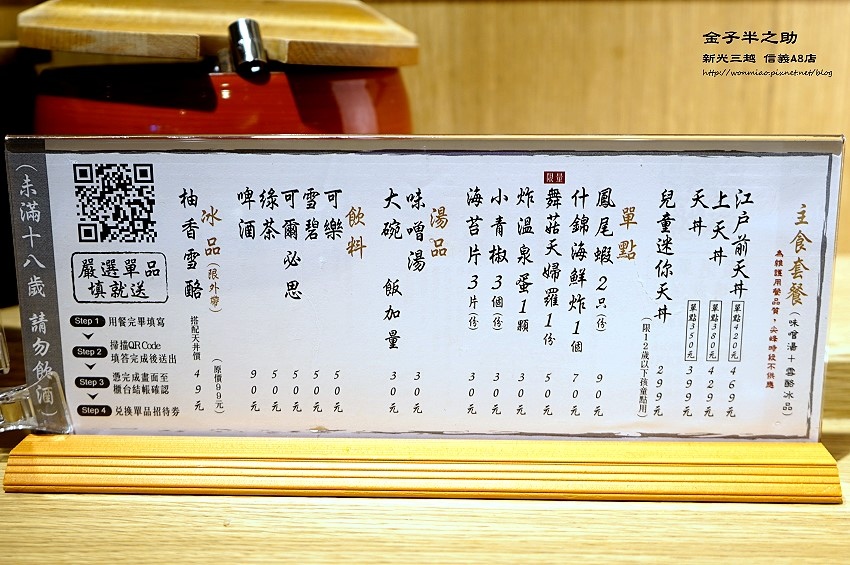 金子半之助
新光三越 信義A8店
http://wonmiao.pixnet.net/blog
主食套餐(味噌湯+雪酪冰品)
為維護用餐品質,尖峰時段不供應
江戶前天丼 單點420元 469元
上天丼 單點380元 429元
天丼 單點350元 399元
兒童迷你天丼 299元
(限12歲以下孩童點用)
單點
鳳尾蝦2只(份) 90元
什錦海鮮炸1個 70元
限量
舞菇天婦羅1份 50元
炸溫泉蛋1顆 30元
小青椒3個(份) 30元
海苔片3片(份) 30元
湯品
味噌湯 30元
大碗 飯加量 30元
飲料
可樂 50元
雪碧 50元
可爾必思 50元
綠茶 50元
啤酒 90元
冰品(限外帶)
(原價99元)
柚香雪酪 搭配天丼價 49元
嚴選單品
填就送
Step 1 用餐完畢填寫
Step 2 掃描QR Code
填答完成後送出
Step 3 憑完成畫面至
櫃台結帳確認
Step 4 兌換單品招待券
(未滿十八歲 請勿飲酒)